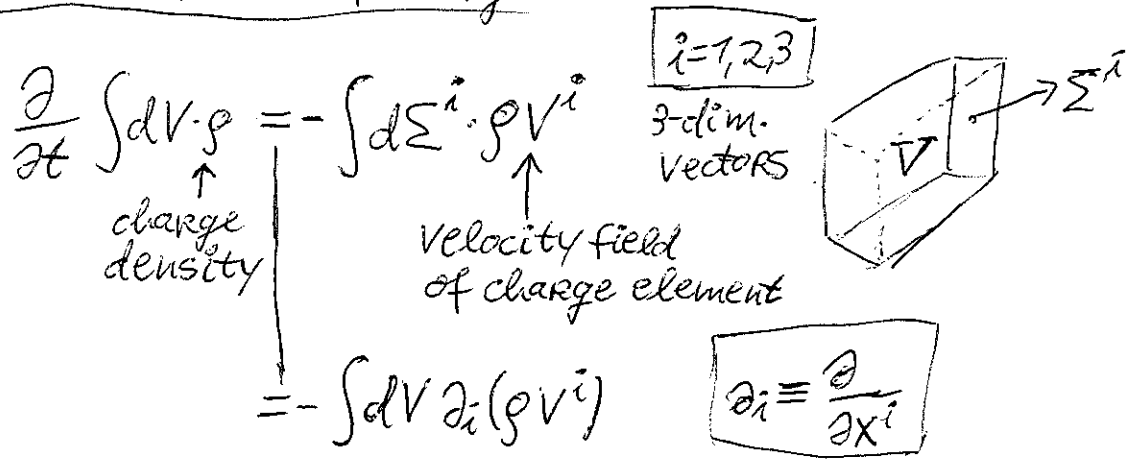 i=1,2,3
∂/∂t ∫dV·ρ = - ∫dΣ^i·ρV^i
3-dim.
vectors
Σ^i
V
↑
charge
density
↑
velocity field
of charge element
= - ∫dV ∂_i(ρV^i)
∂_i ≡ ∂/∂x^i